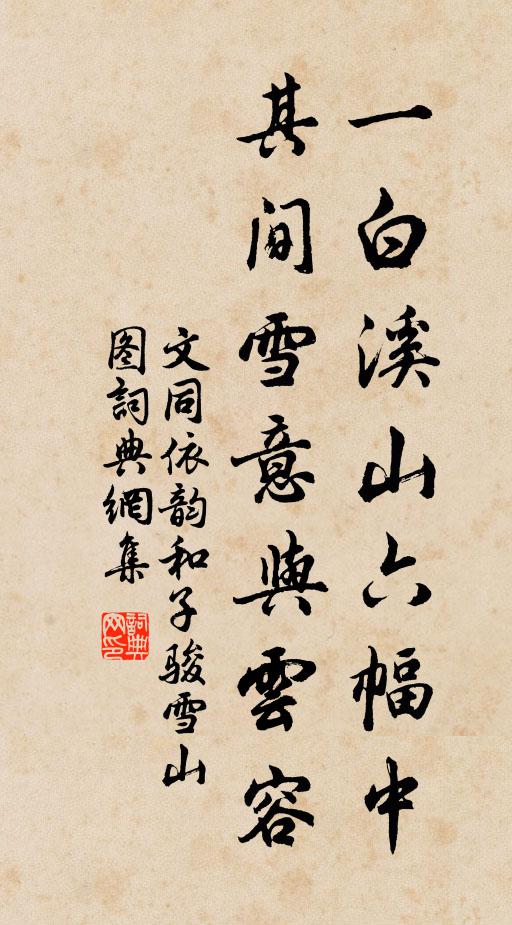 一白溪山六幅中
其间雪意與雲容
文同依韵和子骏雪山
图詞典網集
詞典网印